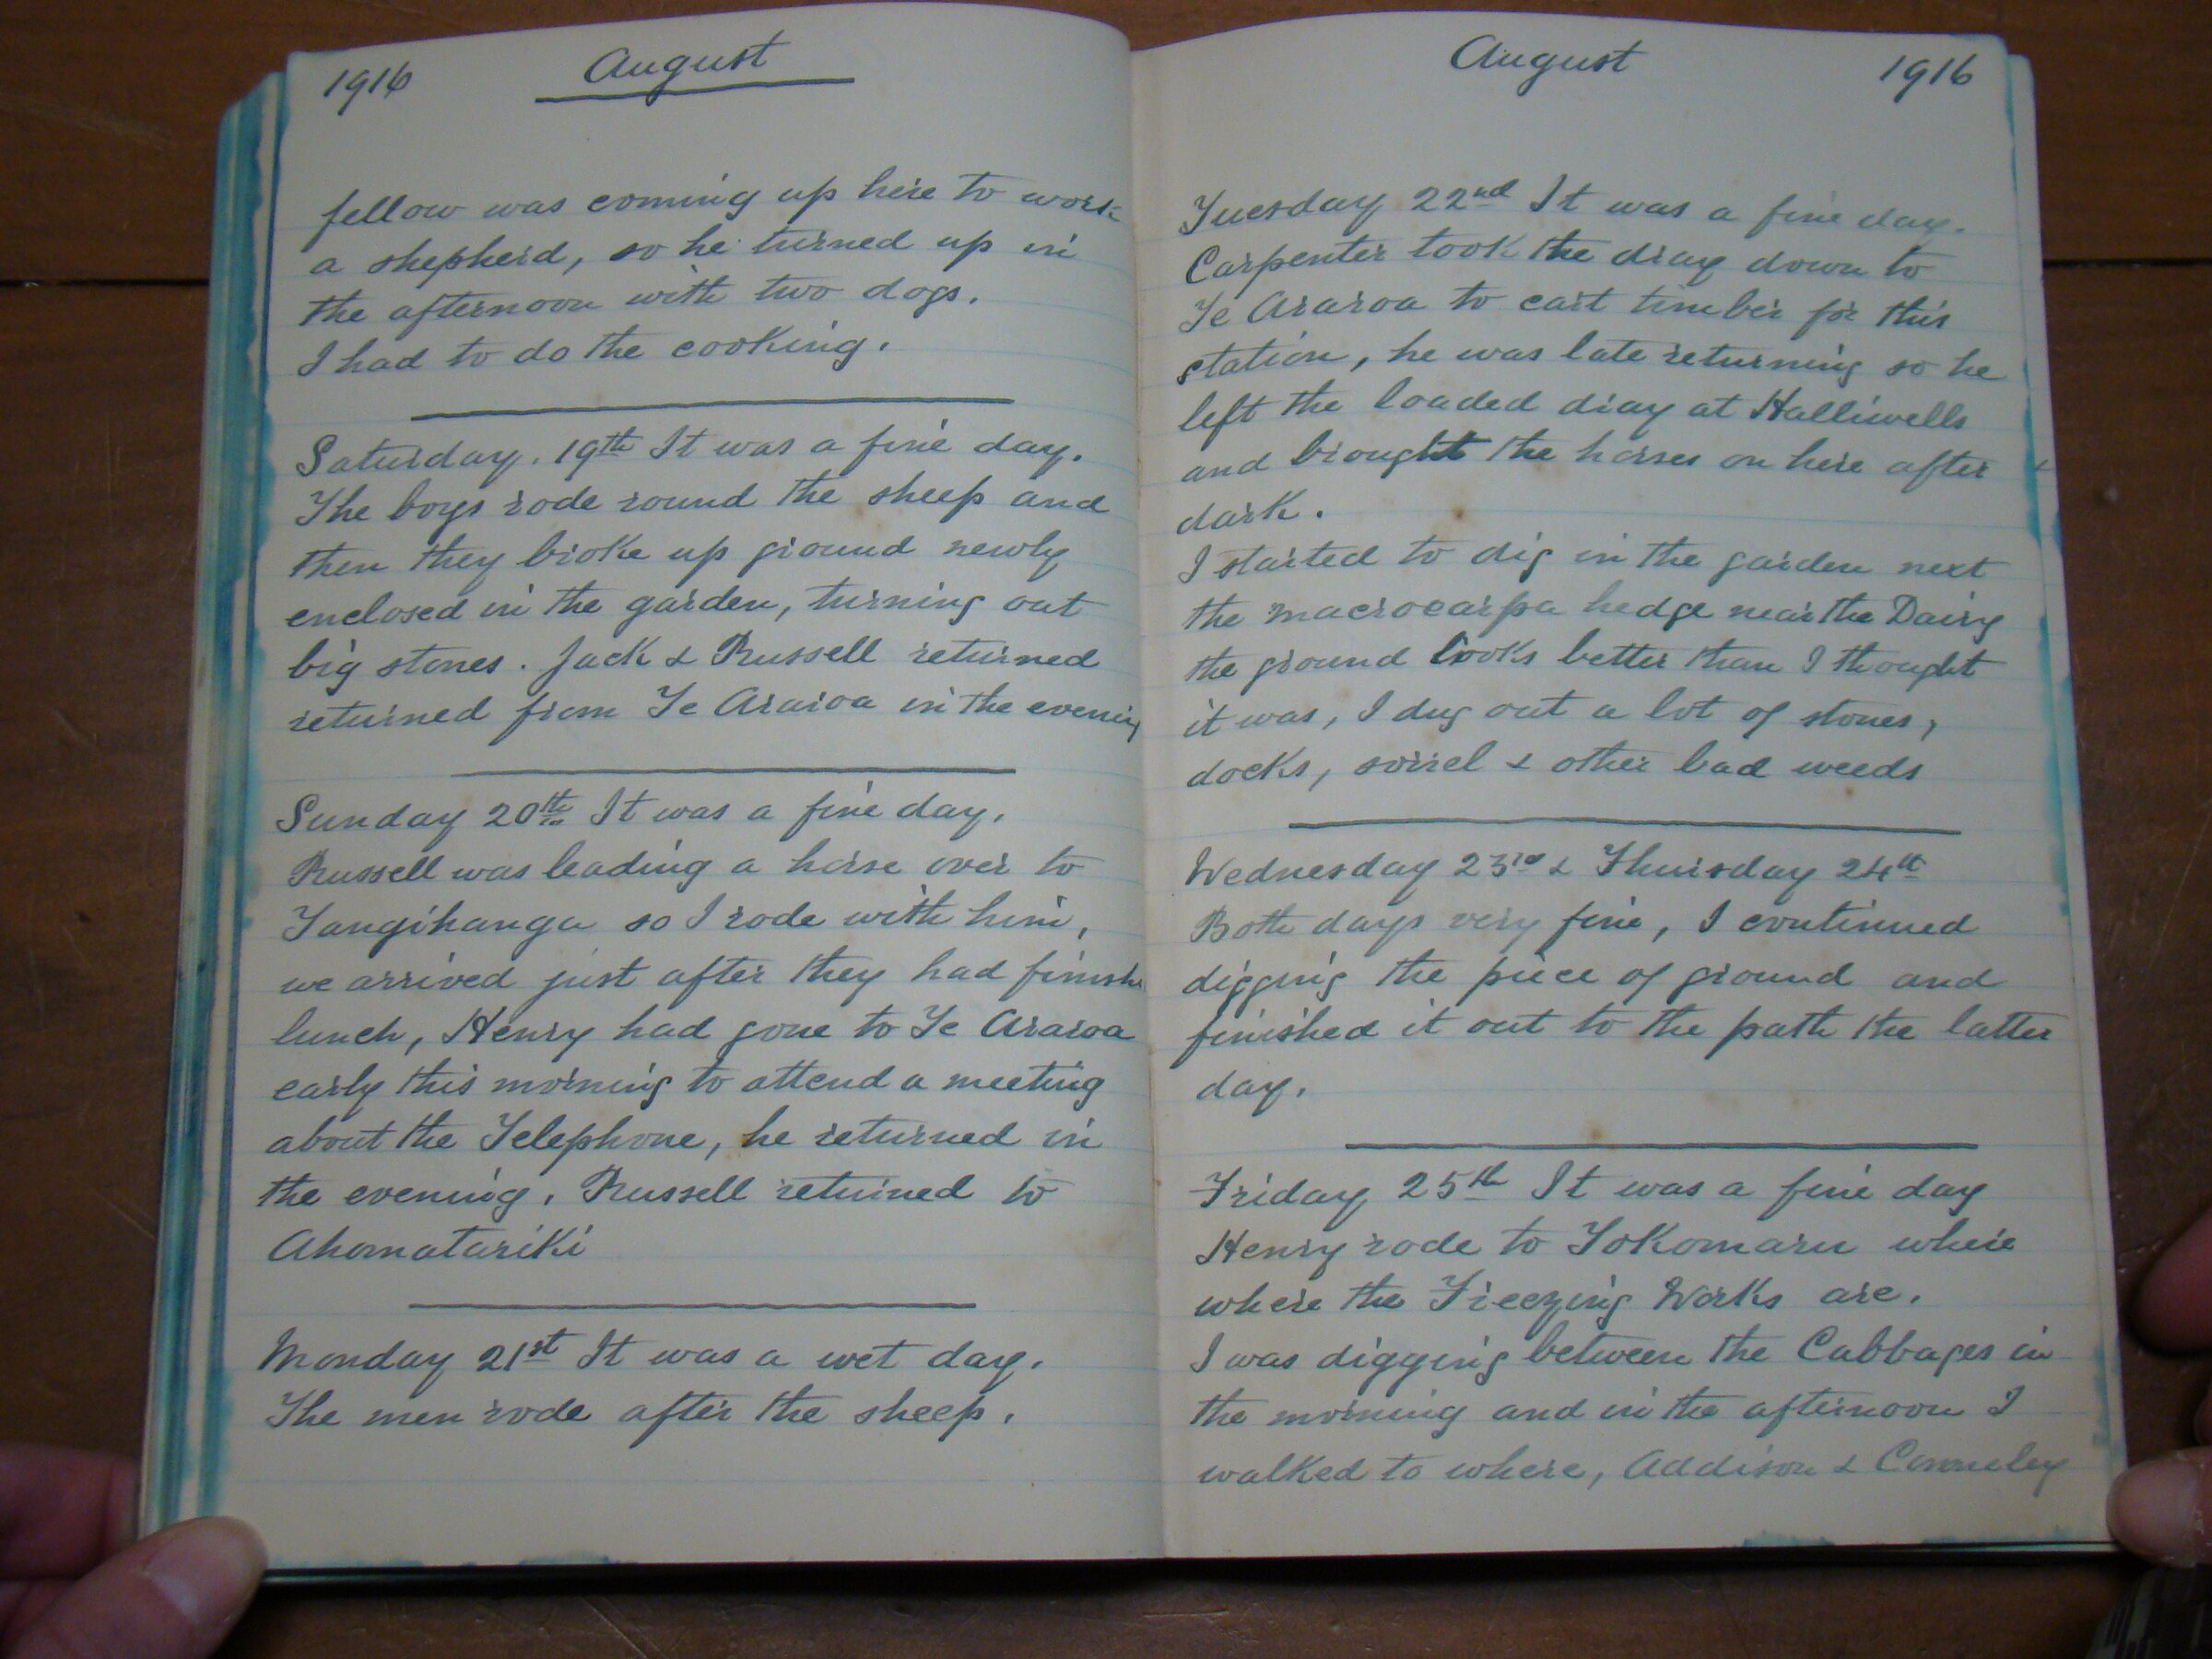 1916 August
fellow was coming up here to work
a shepherd, so he turned up in
the afternoon with two dogs.
I had to do the cooking.
Saturday. 19th It was a fine day.
The boys rode round the sheep and
then they broke up ground newly
enclosed in the garden, turning out
big stones. Jack & Russell returned
returned from Te Araroa in the evening
Sunday 20th It was a fine day.
Russell was leading a horse over to
Tangihanga so I rode with him,
we arrived just after they had finishe
lunch, Henry had gone to Te Araroa
early this morning to attend a meeting
about the Telephone, he returned in
the evening. Russell returned to
Ahomatariki
Monday 21st It was a wet day.
The men rode after the sheep.
August 1916
Tuesday 22nd It was a fine day.
Carpenter took the dray down to
Te Araroa to cart timber for this
station, he was late returning so he
left the loaded dray at Halliwells
and brought the horses on here after
dark.
I started to dig in the garden next
the macrocarpa hedge near the Dairy
the ground looks better than I thought
it was, I dug out a lot of stones,
docks, sorrel & other bad weeds
Wednesday 23rd & Thursday 24th
Both days very fine, I continued
digging the piece of ground and
finished it out to the path the latter
day.
Friday 25th It was a fine day
Henry rode to Tokomaru where
where the Freezing Works are.
I was digging between the Cabbages in
the morning and in the afternoon I
walked to where, Addison &